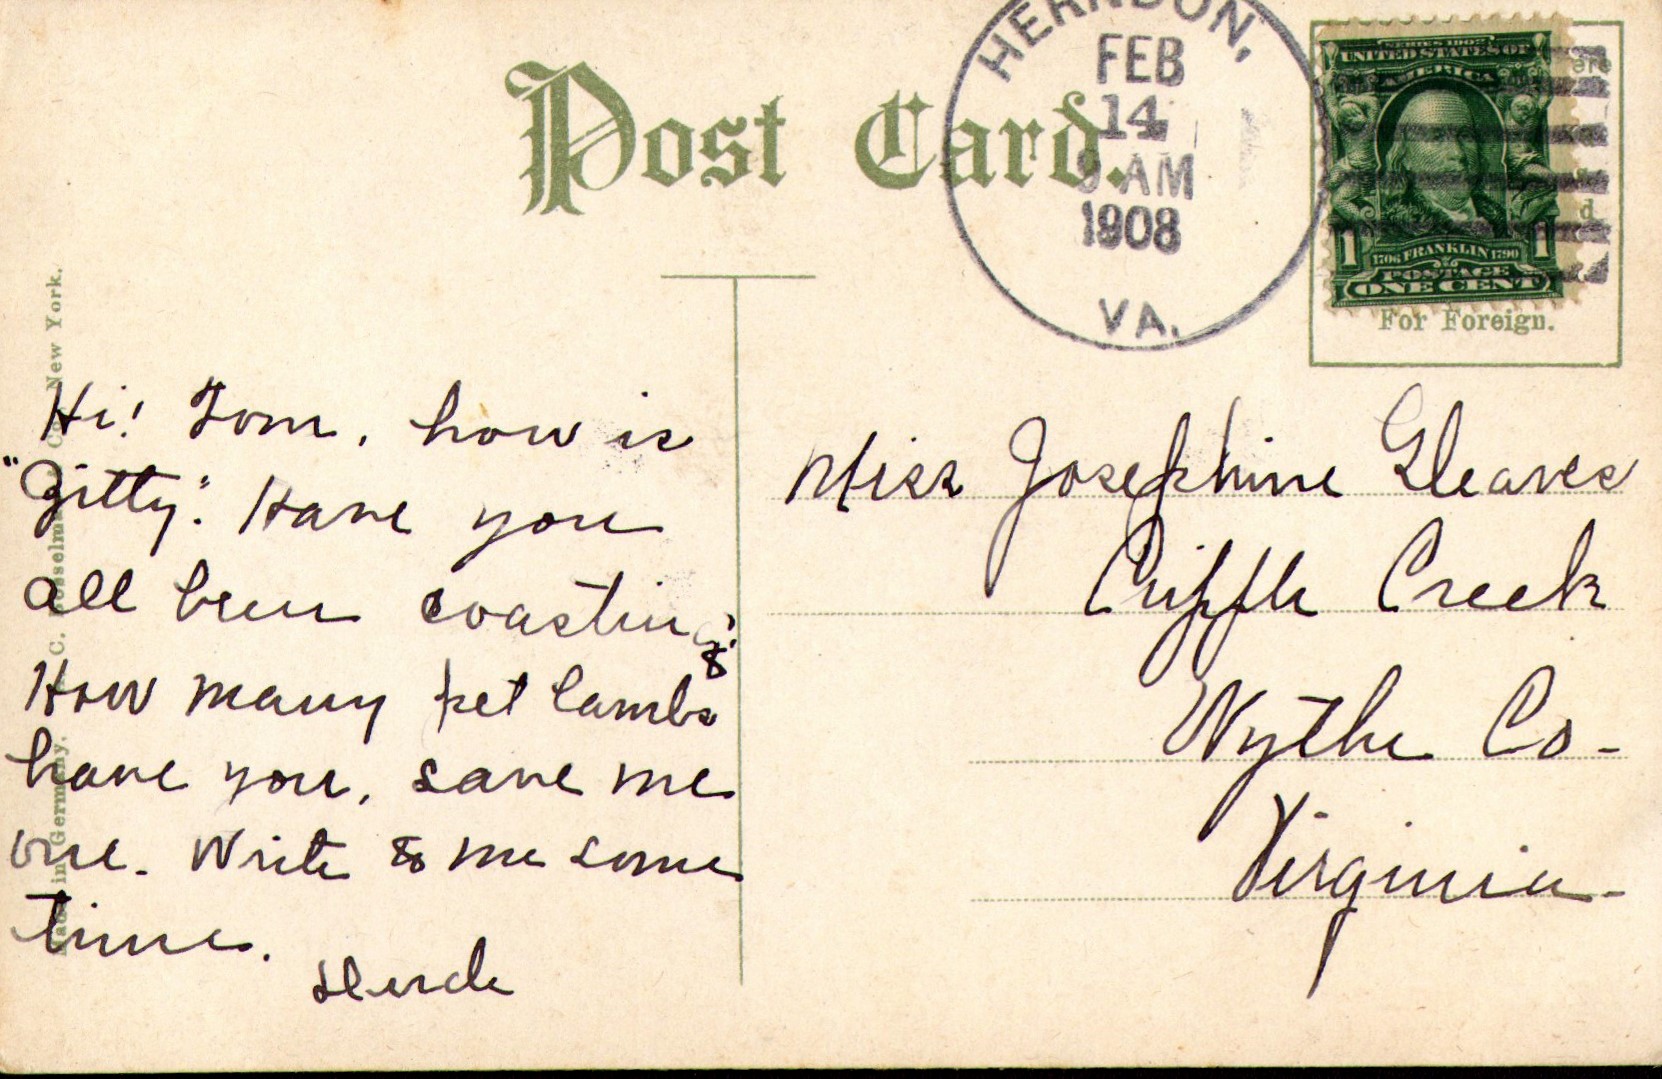 Post Card.
HERNDON,
FEB
14
9 AM
1908
VA.
SERIES 1902
UNITED STATES OF
AMERICA
1 1
1706 FRANKLIN 1790
POSTAGE
ONE CENT
For Foreign.
Hi! Tom, how is
"Gitty". Have you
all been coasting?
How many pet lambs
have you, save me
one. Write to me some
time.
Miss Josephine Gleaves
Cripple Creek
Wythe Co-
Virginia-
Made in Germany. C. Co. New York.